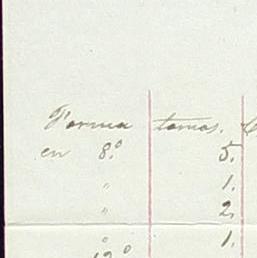 Forma tomos.
en 8.º 5.
" 1.
" 2.
" 1.
12º